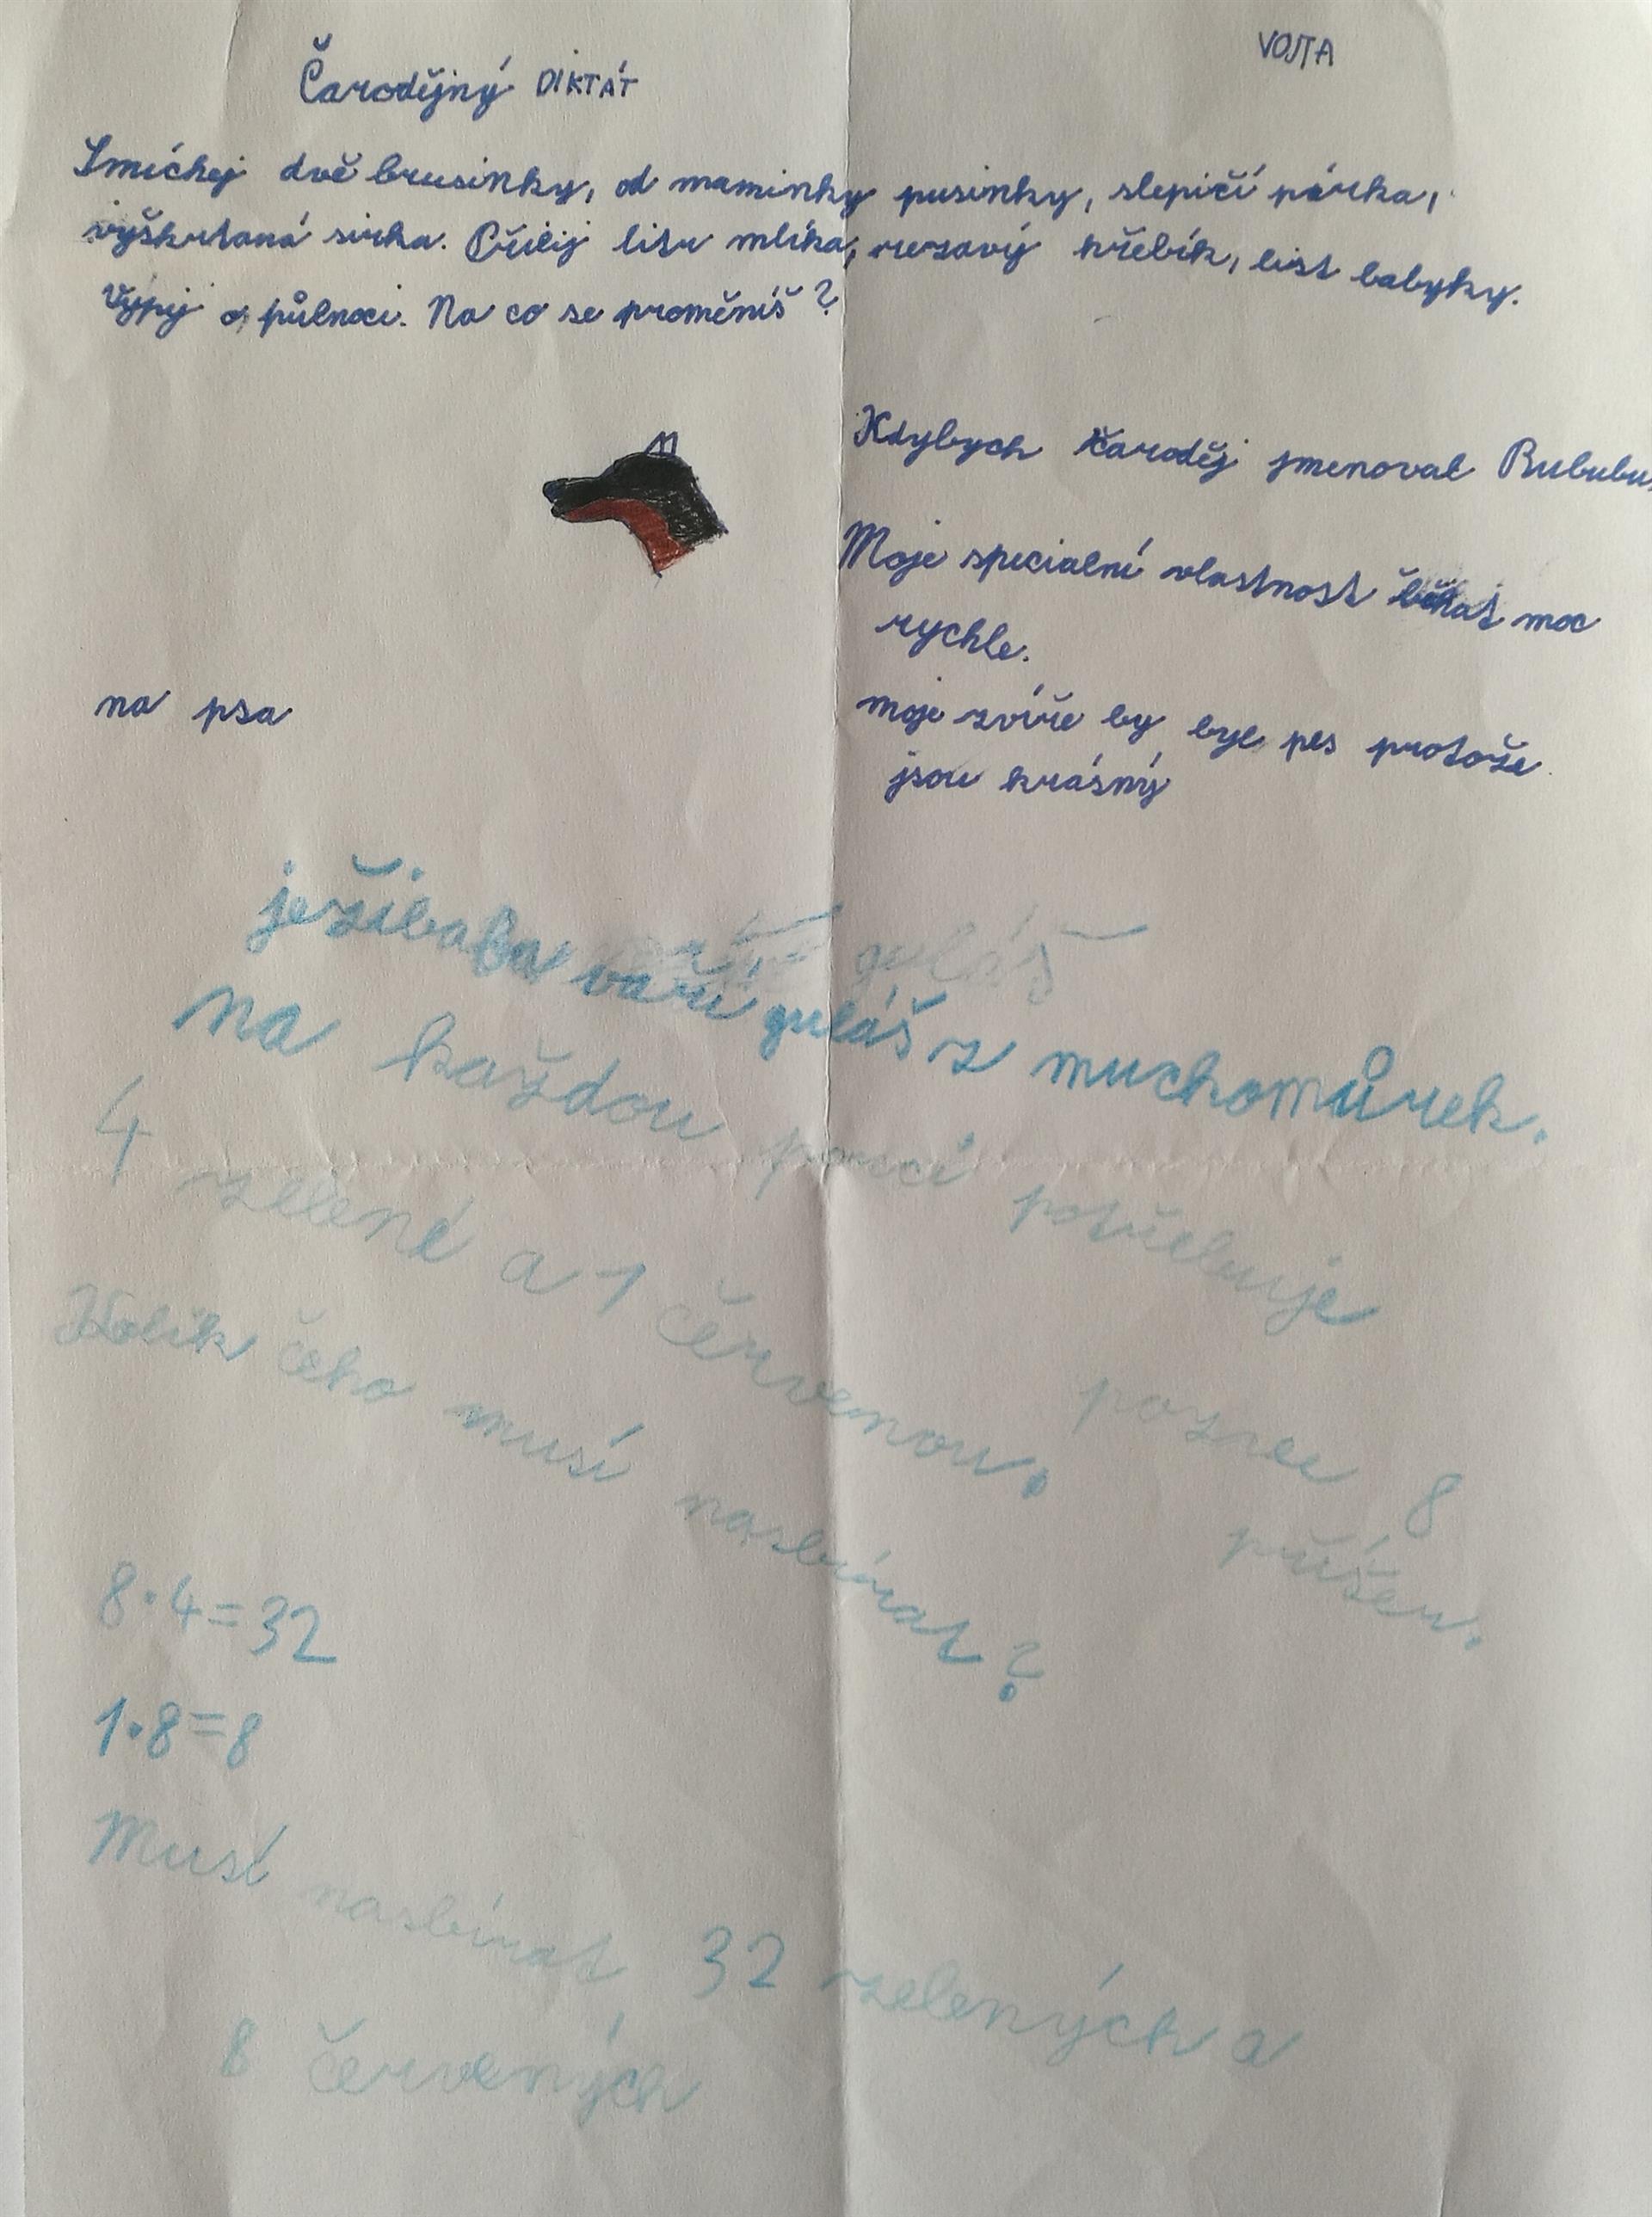 Čarodějný DIKTÁT
VOJTA
Smíchej dvě brusinky, od maminky pusinky, slepičí pírka,
vyškrtaná sirka. Přilij litr mlíka, rezavý hřebík, list babyky.
Vypij o půlnoci. Na co se proměníš?
na psa
Kdybych čaroděj jmenoval Bububu.
Moje specialní vlastnost běhat moc
rychle.
moje zvíře by byl pes protože
jsou krásný
ježibaba vaří guláš z muchomůrek.
na každou porci potřebuje
4 zelené a 1 červenou. pozve 8 příšer.
Kolik čeho musí nasbírat?
8·4=32
1·8=8
Musí nasbírat 32 zelených a
8 červených